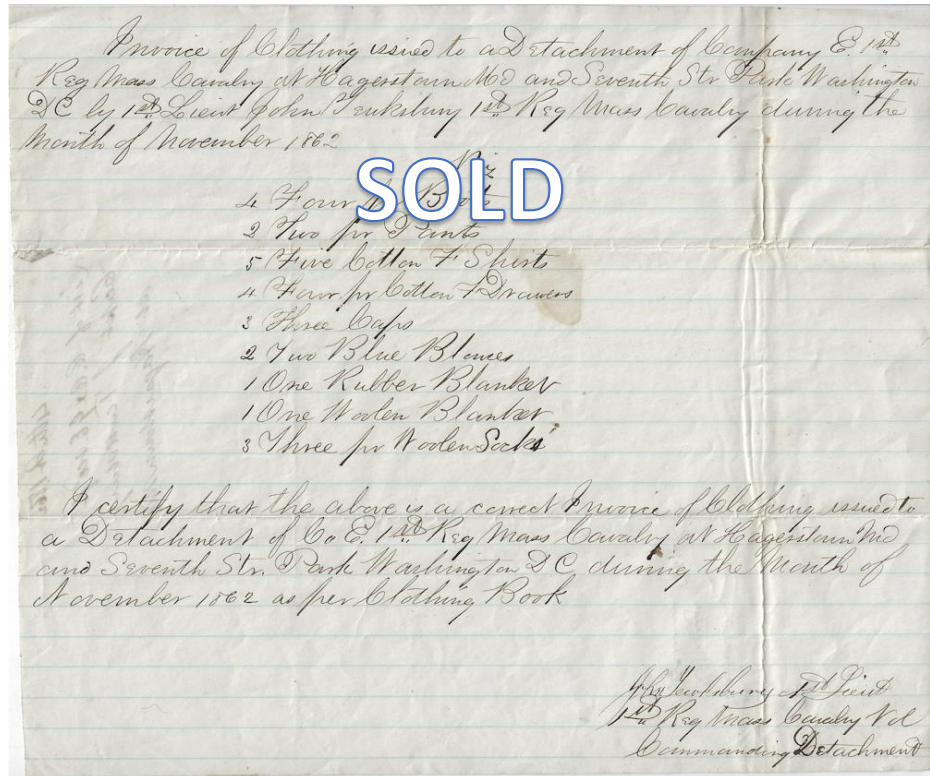 Invoice of Clothing issued to a Detachment of Company E. 1st
Reg Mass Cavalry at Hagerstown Md and Seventh Str Park Washington
DC by 1st Lieut John Tewksbury 1st Reg Mass Cavalry during the
Month of November 1862
Viz
SOLD
4 Four pr Boots
2 Two pr Pants
5 Five Cotton F Shirts
4 Four pr Cotton F Drawers
3 Three Caps
2 Two Blue Blouces
1 One Rubber Blanket
1 One Woolen Blanket
3 Three pr Woolen Socks
I certify that the above is a correct Invoice of Clothing issued to
a Detachment of Co E. 1st Reg Mass Cavalry at Hagerstown Md
and Seventh Str. Park Washington D C during the Month of
November 1862 as per Clothing Book
John Tewksbury 1st Lieut
1st Reg Mass Cavalry Vol
Commanding Detachment